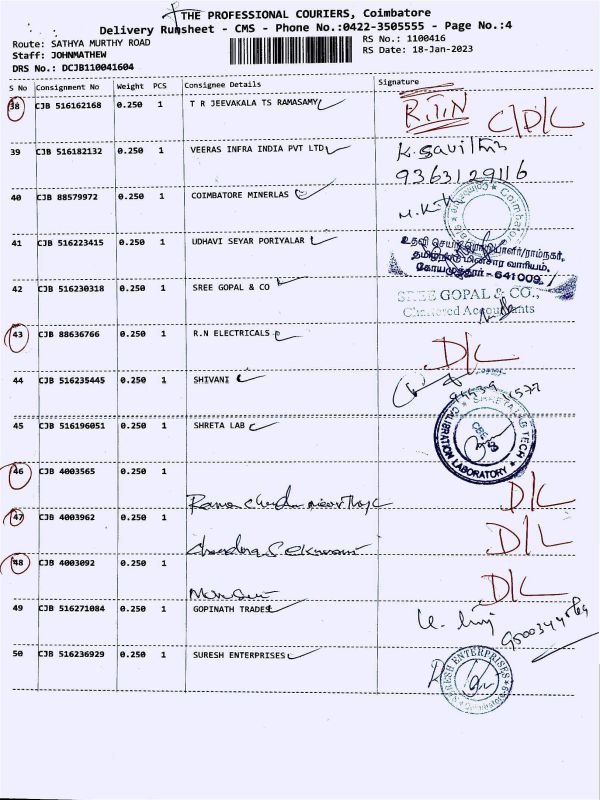 THE PROFESSIONAL COURIERS, Coimbatore
Delivery Runsheet - CMS - Phone No.:0422-3505555 - Page No.:4
Route: SATHYA MURTHY ROAD
RS No.: 1100416
Staff: JOHNMATHEW
RS Date: 18-Jan-2023
DRS No.: DCJB110041604
S No Consignment No Weight PCS Consignee Details Signature
38 CJB 516162168 0.250 1 T R JEEVAKALA TS RAMASAMY RTIN C/D/L
39 CJB 516182132 0.250 1 VEERAS INFRA INDIA PVT LTD K. Savithri
9363129116
40 CJB 88579972 0.250 1 COIMBATORE MINERLAS
41 CJB 516223415 0.250 1 UDHAVI SEYAR PORIYALAR
தமிழ்நாடு மின்சார வாரியம்.
கோயமுத்தூர் - 641009.
42 CJB 516230318 0.250 1 SREE GOPAL & CO SREE GOPAL & CO.,
Chartered Accountants
43 CJB 88636766 0.250 1 R.N ELECTRICALS D/L
44 CJB 516235445 0.250 1 SHIVANI
45 CJB 516196051 0.250 1 SHRETA LAB SHRETA LAB TECH CALIBRATION LABORATORY CBE
46 CJB 4003565 0.250 1
D/L
47 CJB 4003962 0.250 1
D/L
48 CJB 4003092 0.250 1
D/L
49 CJB 516271084 0.250 1 GOPINATH TRADES
50 CJB 516236929 0.250 1 SURESH ENTERPRISES SURESH ENTERPRISES